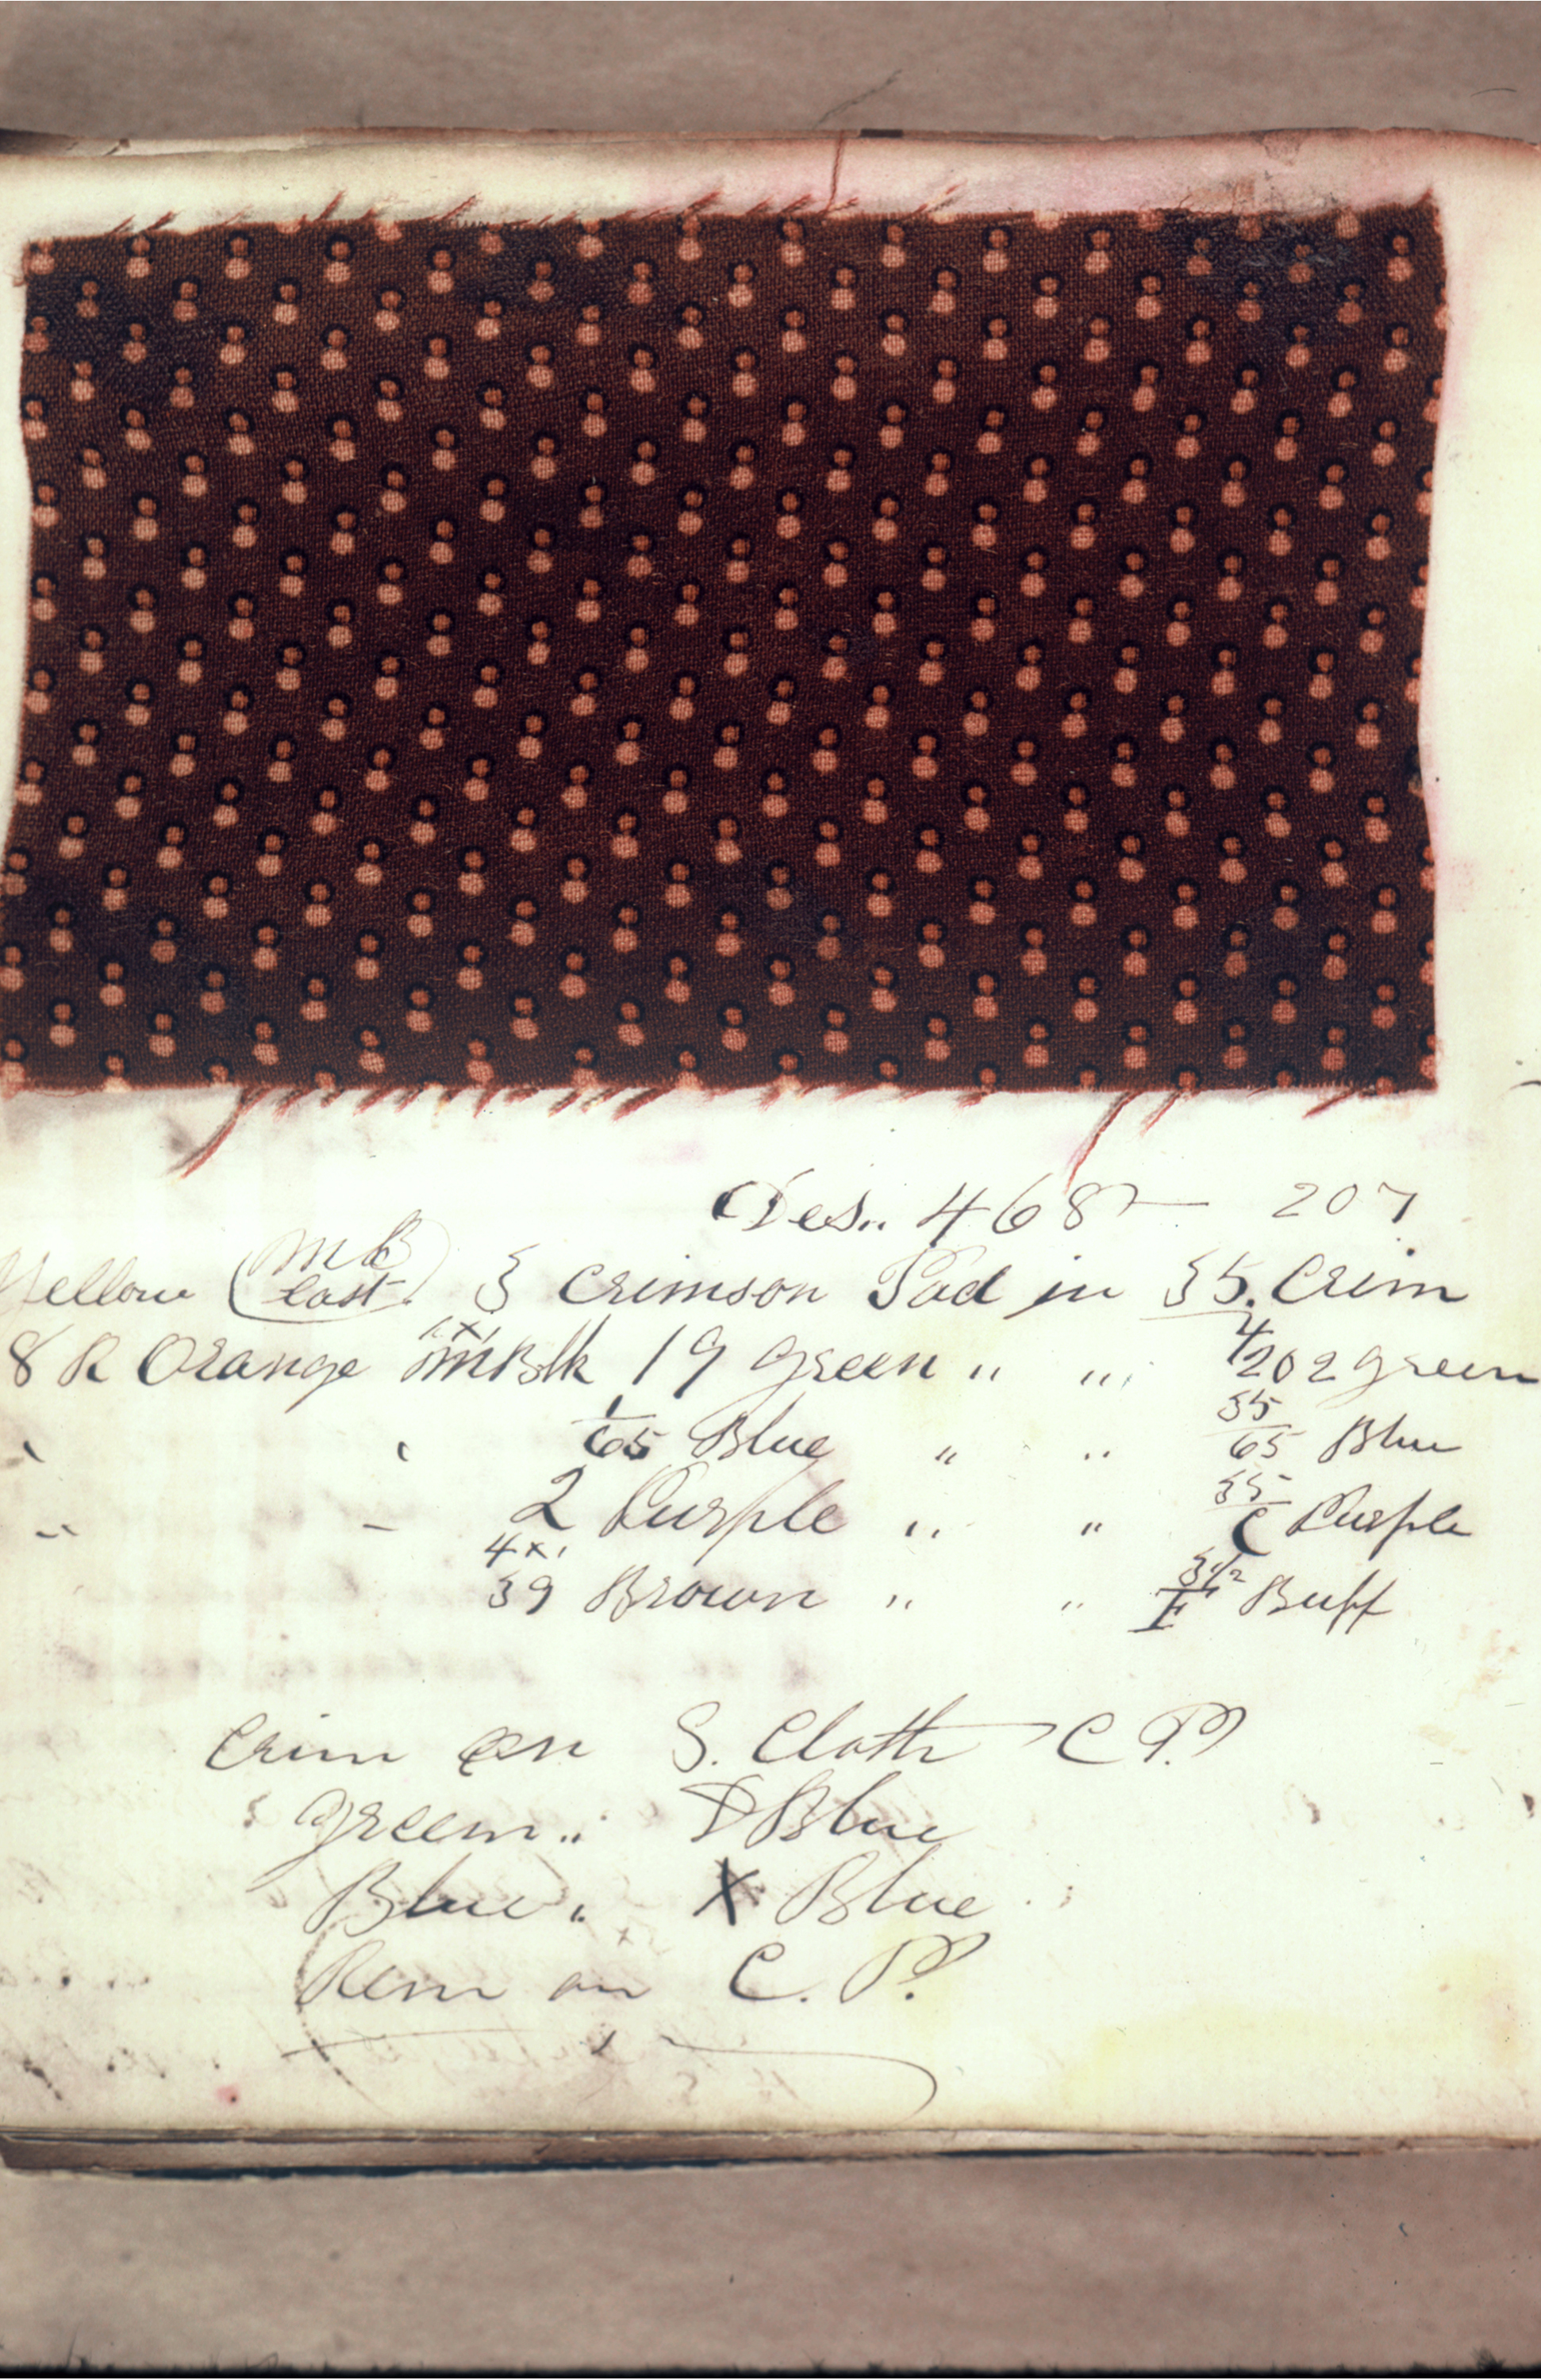 Des.. 468 — 207
Yellow (MB last) 3 Crimson Pad in 35. Crim
8 R Orange MBlk 19 Green " " 4/202 Green
" " 1/65 Blue " " 35/65 Blue
" " 2 Purple " " 35/C Purple
4x1
39 Brown " " 3 1/2 / F Buff
Crim on S. Cloth C P.
Green " D Blue
Blue " X Blue
Rem on C. P.